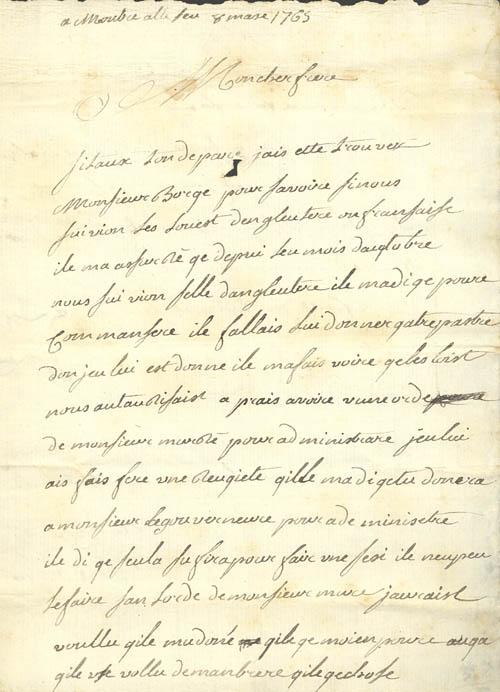 a Monbre alle leu 8 mars 1765
Mon cher frere
sitaux ton depare jais ette trouver
Monsieur Borge pour savoire si nous
suivion les louest dengleutere ou fransaise
ile ma assurolé qe depui leu mois daoctobre
nous suivion selle dangleutere ile ma di qe poure
Commansere ile fallais lui donner qatre pastre
don jeu lui est donne ile ma fais voire qe les loist
nous autaurisaist a prais avoire vu un orde
de monsieur muré pour administrare jeu lui
ais fais fere une reugiete qille ma di qe tu donera
a monsieur le gouverneure pour ade ministré
ile di qe seula sufira pour fair une sesi ile neu peu
le faire san lorde de monsieur mure jauraist
voullu qile mu doné qilqe moien poure
qile vollu demanbrere qilqe chose